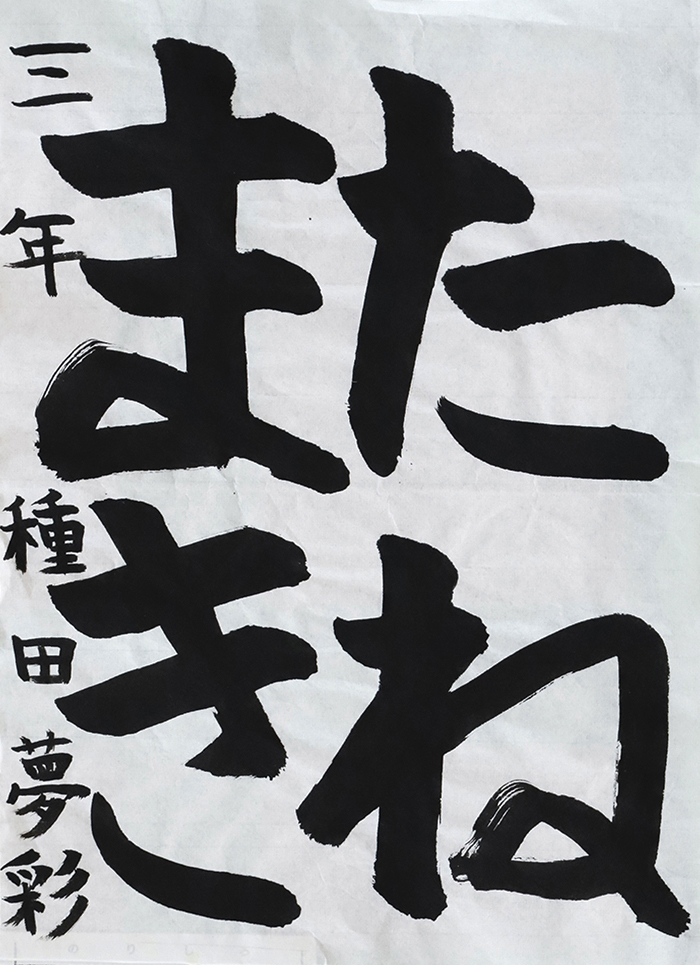 たね
まき
三年 種田夢彩